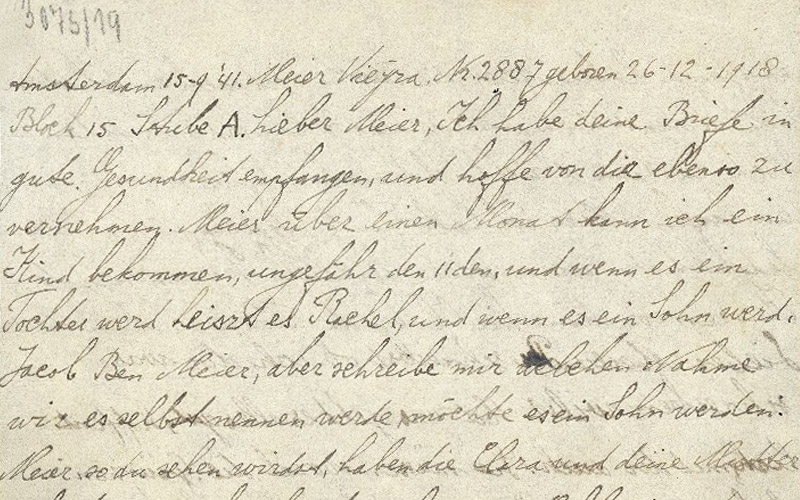 3075/19
Amsterdam 15-9 '41. Meier Vieÿra. Nr. 2887 geboren 26-12-1918
Block 15 Stube A. Lieber Meier, Ich habe deine Briefe in
gute Gesundheit empfangen, und hoffe von die ebenso zu
vernehmen. Meier über einen Monat kann ich ein
Kind bekommen, ungefähr den 11den, und wenn es ein
Tochter werd heiszt es Rachel, und wenn es ein Sohn werd.
Jacob Ben Meier, aber schreibe mir welchen Nahme
wir es selbst nennen werde, möchte es ein Sohn werden.
Meier, so du sehen wirdst, haben die und deine Mutter